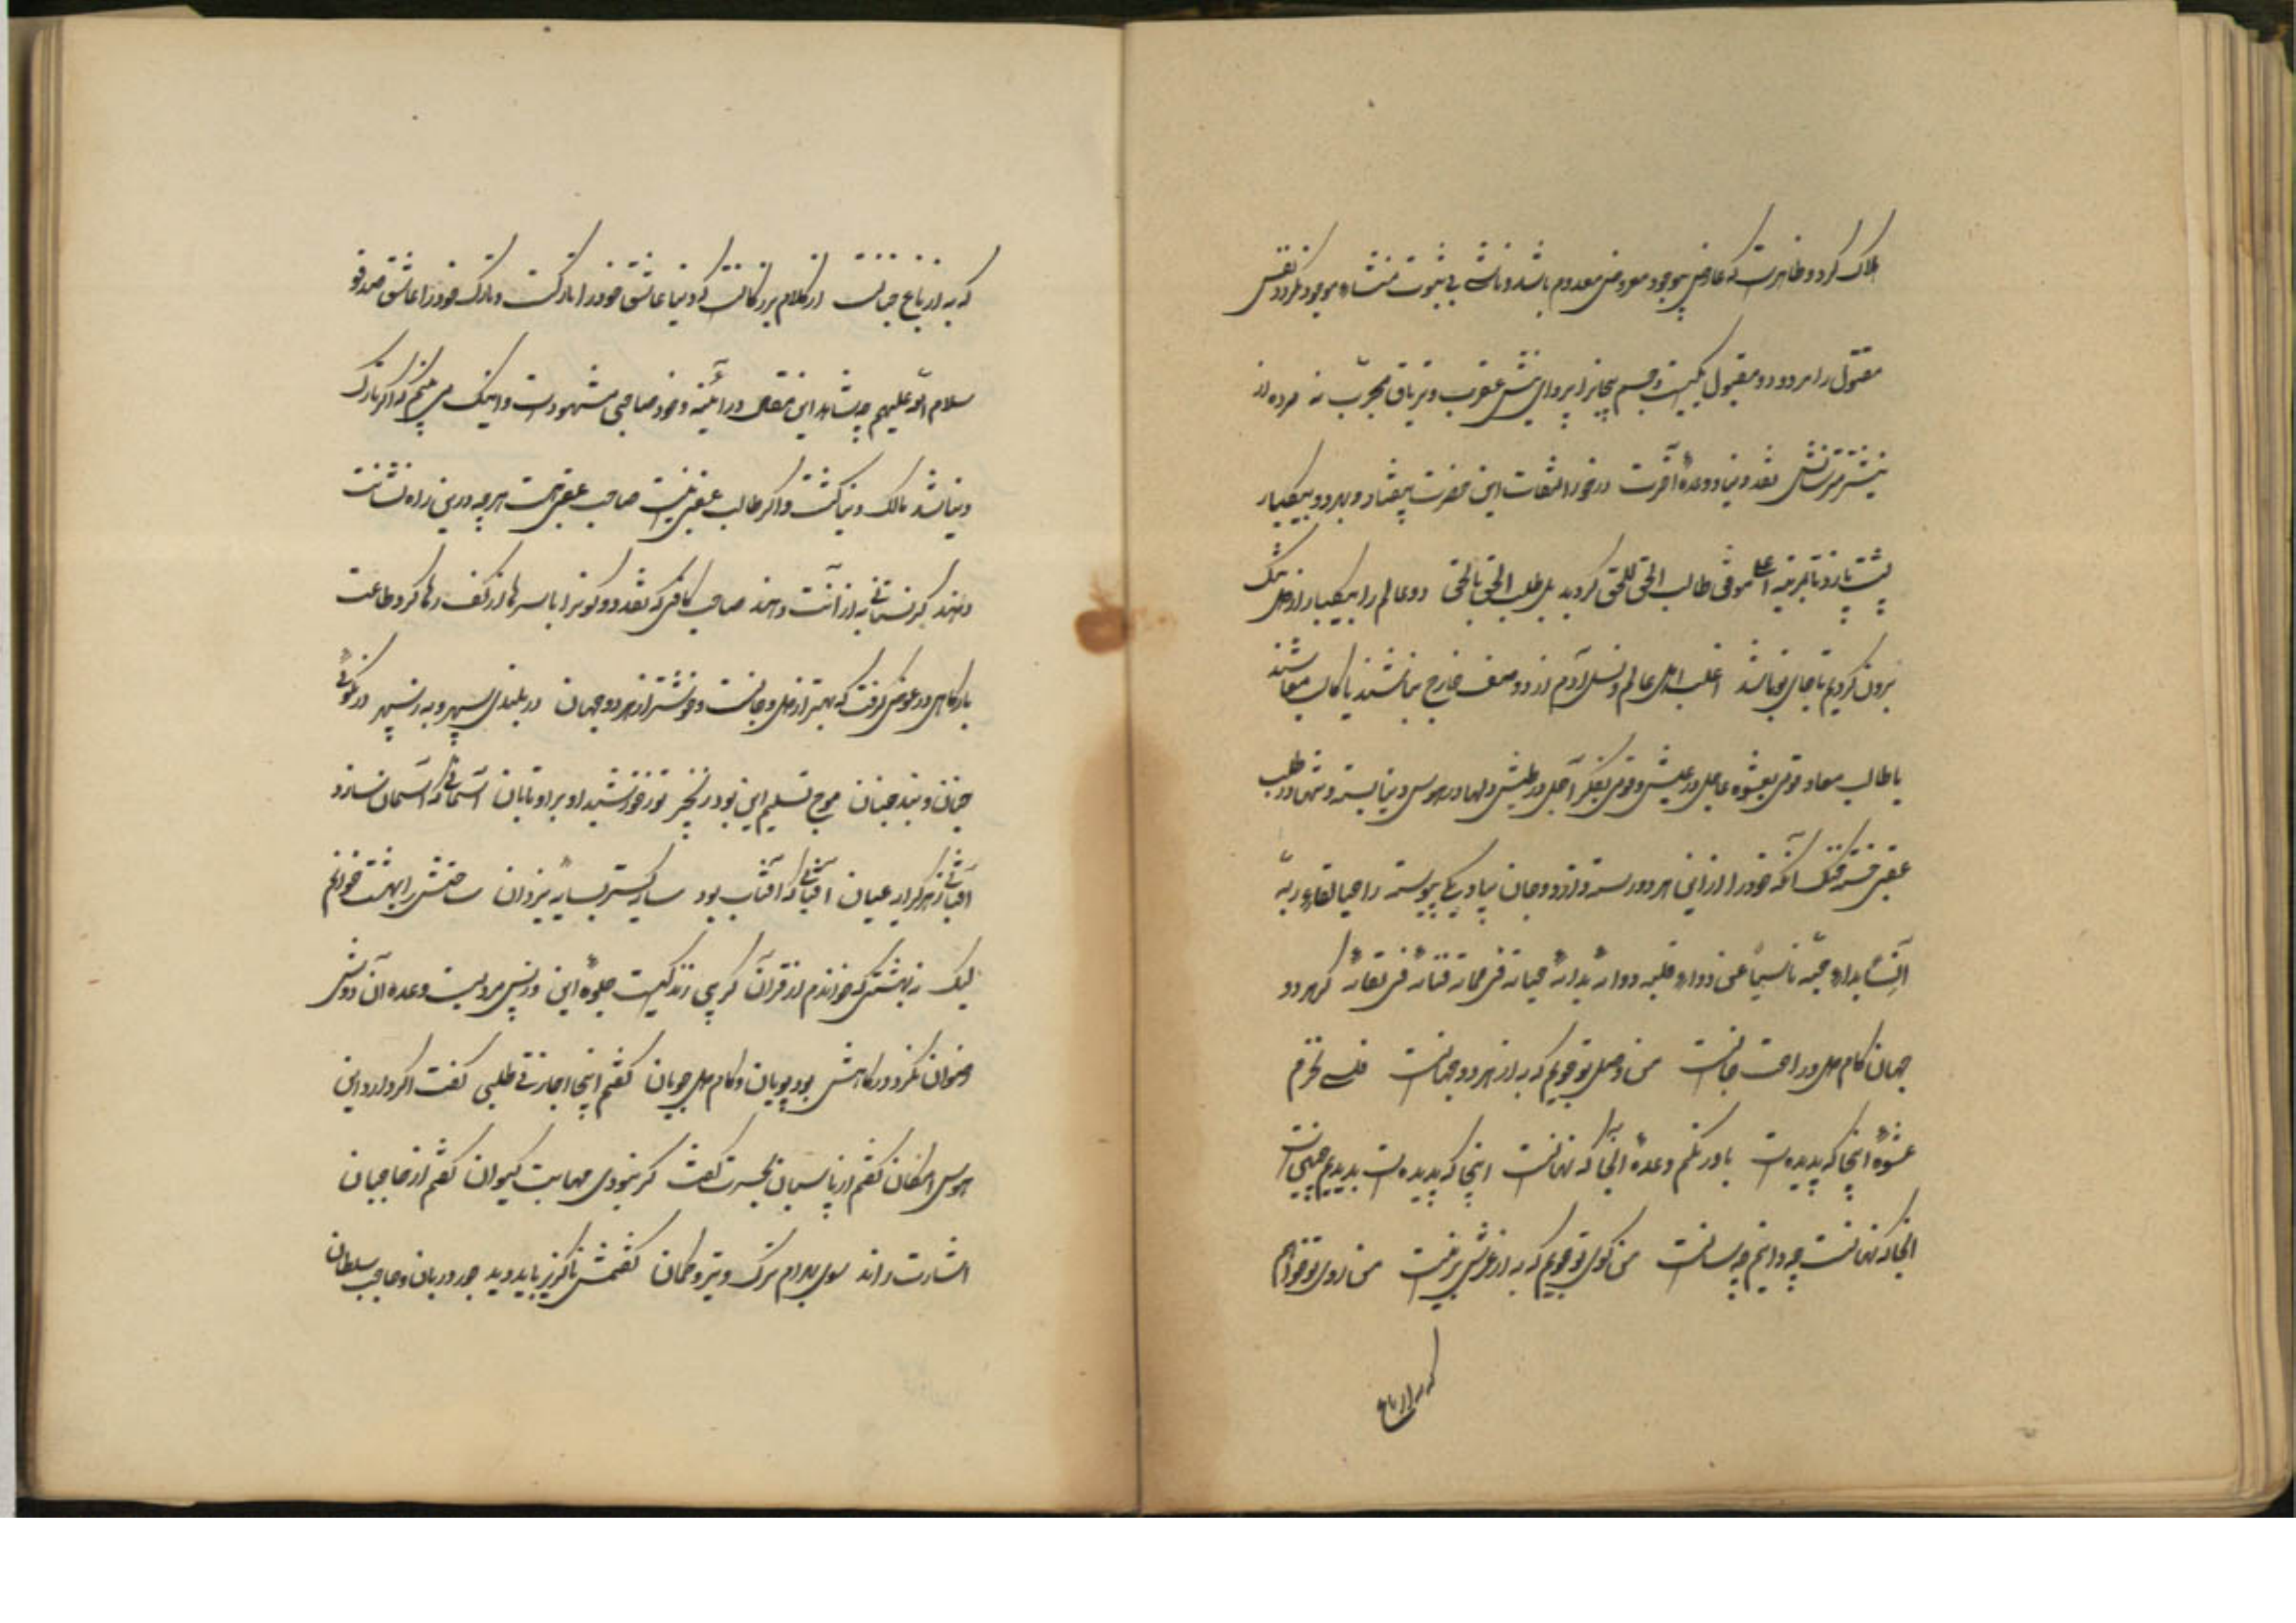 هلاک کرد و ظاهرست که عارض موجود معروض معدوم باشد و ناشی بی ثبوت منشاء موجود نگردد نفس
مقتول را مردود و مقبول یکیست و جسم بیجانرا پروای نیش عقرب و تریاق مجرب نه مرده از
نیشتر مترسانش نقد دنیا و وعدهٔ آخرت در خور التفات این حضرت نیفتاد و بهر دو بیکبار
پشت پا زد تا بقرینه اعلی موفی طالب الحق للحق گردید بل طلب الحق بالحق دو عالم را بیکبار از دل تنگ
برون کردیم تا جای تو باشد اغلب اهل عالم و نسل آدم از دو صنف خارج نباشند یا کاسب معاشند
یا طالب معاد قومی بعشوه عاجل در عیش و قومی بفکر آجل در طیش دلها در هوس دنیا بسته و تنها در طلب
عقبی خسته خنک آنکه خود را از این هر دو رسته و از دو جهان بیاد یکی پیوسته راجیا لقاء ربه
آنسا بداء حبه ناسیا عن دواء قلبه دوائه بدائه حیاته فی مماته فنائه فی بقائه گر هر دو
جهان کام دل و راحت جانست من وصل تو جویم که به از هر دو جهانست فلسی نخرم
عشوهٔ اینجا که پدیدست باور نکنم وعدهٔ آنجا که نهانست اینجا که پدیدست بدیدیم چنین است
آنجا که نهانست چه دانم چه سانست من کوی تو جویم که به از عرش برینست من روی تو خواهم
که به از باغ
که به از باغ جنانست از کلام بزرگانست که دنیا عاشق خود را تارکست و تارک خود را عاشق صدق
سلام الله علیهم چه شاهد این مقال در آئینه وجود صاحبی مشهودست و اینک می بینم که اگر تارک
دنیا شد مالک دنیا گشت و اگر طالب عقبی نیست صاحب عقبی است هر چه در این راه نشانت
دهند گر نستانی به از آنت دهند صاحب کافی که نقد دو کون را با سرها از کف رها کرد و طاعت
بارگاهی در عوض گرفت که بهتر از دل و جانست و خوشتر از هر دو جهان در بلندی سپهر و بدر سپهر در نکوئی
جنان و بند جنان موج تسلیم این بود زنجیر نور خورشید او بر او تابان آسمانی که آسمان نسازد
آفتابی ز هر کران عیان آفتابی که آفتاب بود سایه گستر بسایهٔ یزدان ساحتش را بهشت خوانم
لیک نه بهشتی که خواندم از قرآن کز پی زندگیست جلوهٔ این وز پس مردنیست وعده آن دوش
رضوان نگر در گاهش بود پویان و کام دل جویان گفتم اینجا اجازتی طلبی گفت اگر دارد این
هوس امکان گفتم از پاسبان بحسرت گفت گر نبودی مهابت کیوان گفتم از حاجبان
اشارت راند سوی بهرام ترک و تیر و کمان گفتمش ناگزیر باید دید جور دربان و حاجب سلطان